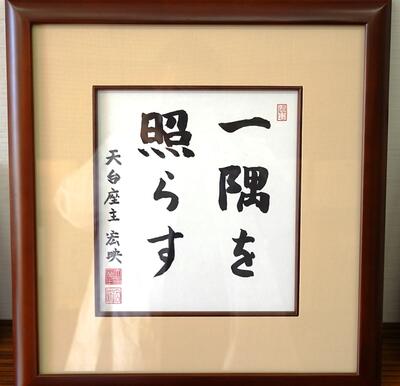 一隅を
照らす
天台座主 宏映